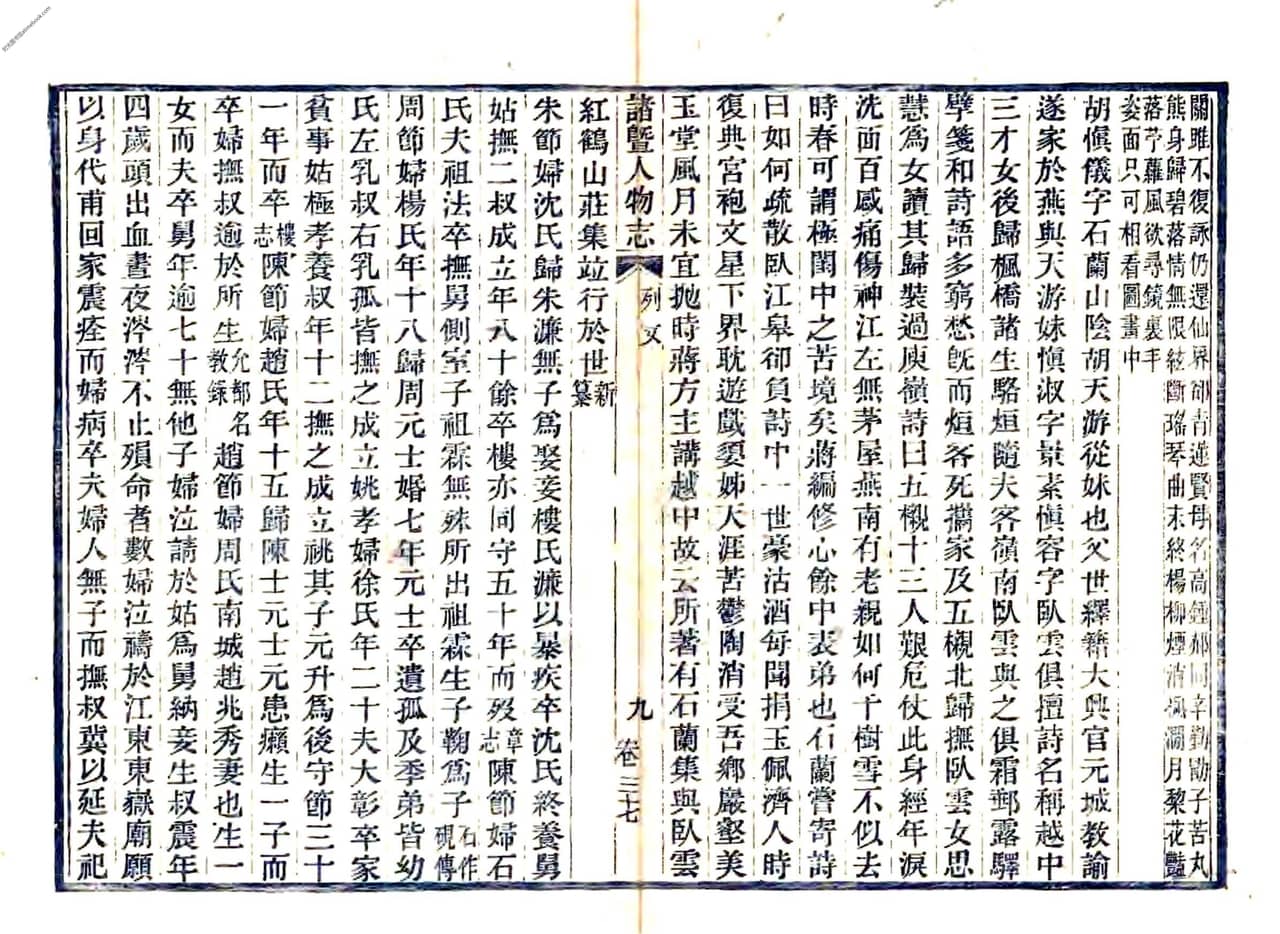 關雎不復詠仍還仙界卻青蓮賢母名高鍾郝同辛勤勖子苦丸
熊身歸碧落情無限絃斷瑤琴曲未終楊柳煙消 月黎花豔
落苧蘿風欲尋鏡裏手
姿面只可相看圖畫中
胡愼儀字石蘭山陰胡天游從妹也父世繹籍大興官元城教諭
遂家於燕與天游妹愼淑字景素愼容字臥雲俱擅詩名稱越中
三才女後歸楓橋諸生駱烜隨夫客嶺南臥雲與之俱霜郵露驛
擘箋和詩語多窮愁旣而烜客死攜家及五櫬北歸撫臥雲女思
慧爲女讀其歸裝過庾嶺詩曰五櫬十三人艱危仗此身經年淚
洗面百感痛傷神江左無茅屋燕南有老親如何千樹雪不似去
時春可謂極閨中之苦境矣蔣編修心餘中表弟也石蘭嘗寄詩
曰如何疏散臥江皋卻負詩中一世豪沽酒每聞捐玉佩濟人時
復典宮袍文星下界耽遊戲嬃姊天涯苦鬱陶消受吾鄉巖壑美
玉堂風月未宜拋時蔣方主講越中故云所著有石蘭集與臥雲
諸暨人物志 列女 九 卷三十七
紅鶴山莊集竝行於世新纂
朱節婦沈氏歸朱濂無子爲娶妾樓氏濂以暴疾卒沈氏終養舅
姑撫二叔成立年八十餘卒樓亦同守五十年而歿章志陳節婦石
氏夫祖法卒撫舅側室子祖霖無殊所出祖霖生子鞠爲子石作硯傳
周節婦楊氏年十八歸周元士婚七年元士卒遺孤及季弟皆幼
氏左乳叔右乳孤皆撫之成立姚孝婦徐氏年二十夫大彰卒家
貧事姑極孝養叔年十二撫之成立祧其子元升爲後守節三十
一年而卒樓志陳節婦趙氏年十五歸陳士元士元患癩生一子而
卒婦撫叔逾於所生允都名教錄趙節婦周氏南城趙兆秀妻也生一
女而夫卒舅年逾七十無他子婦泣請於姑爲舅納妾生叔震年
四歲頭出血晝夜涔涔不止殞命者數婦泣禱於江東東嶽廟願
以身代甫回家震痊而婦病卒夫婦人無子而撫叔冀以延夫祀